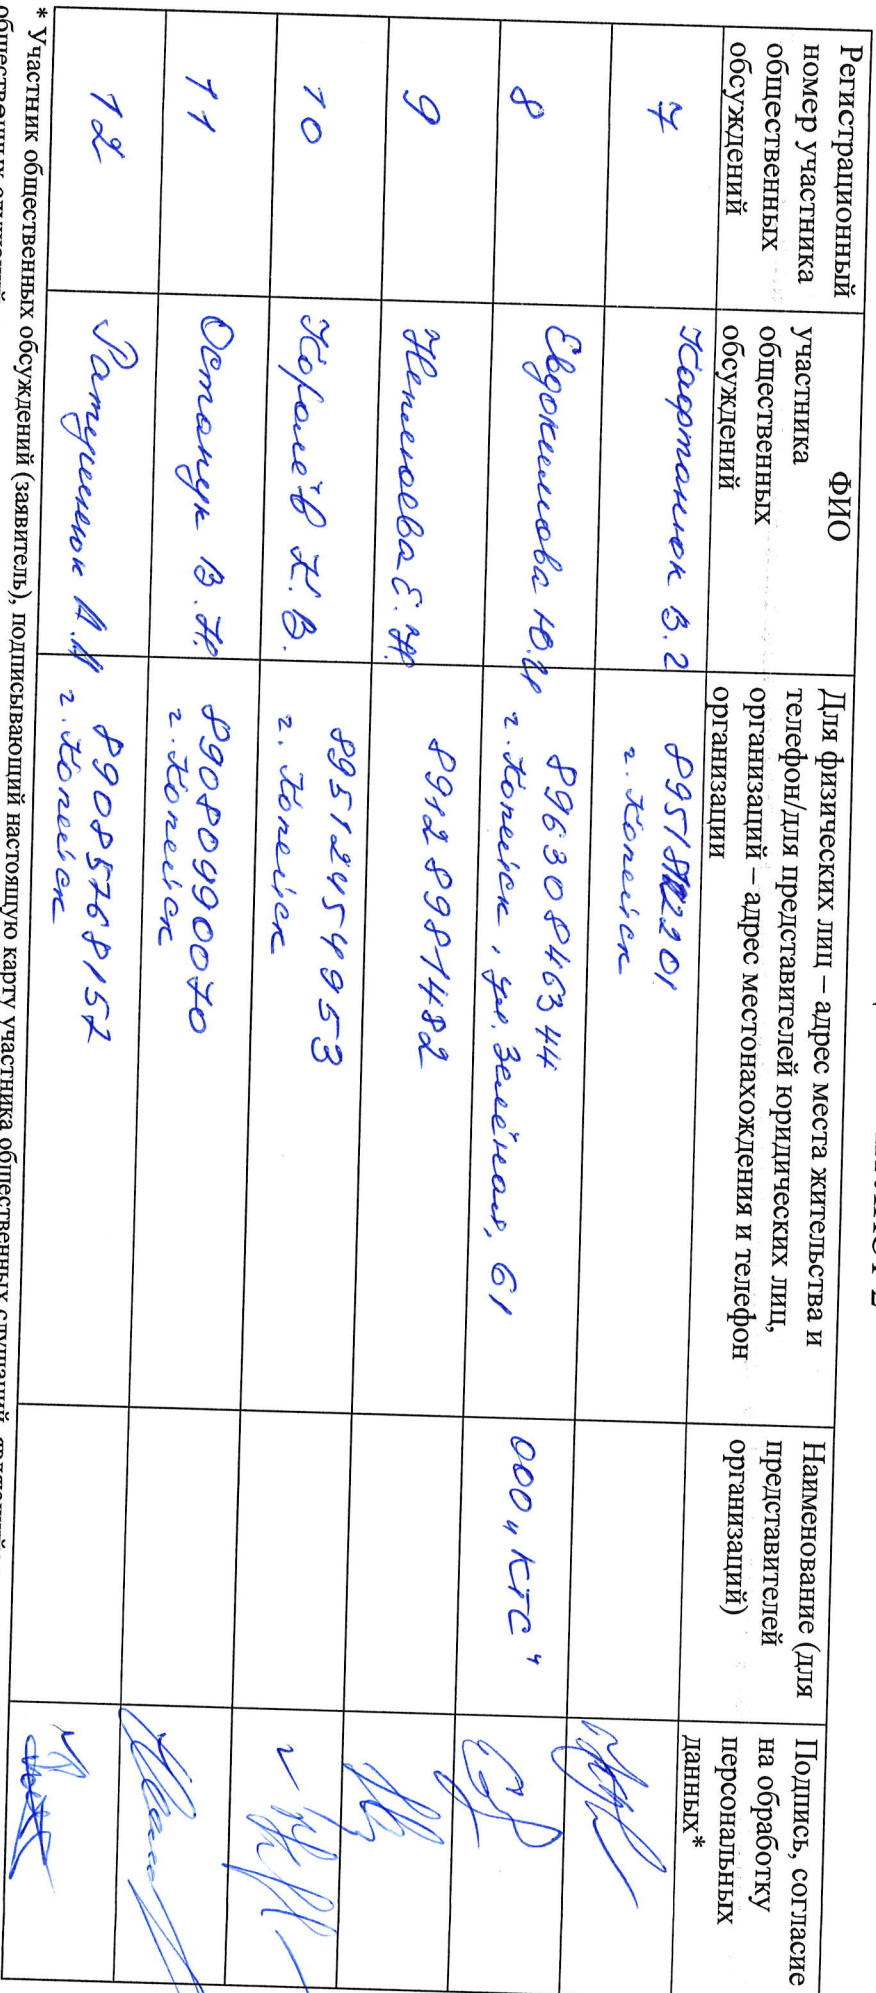 Регистрационный
номер участника
общественных
обсуждений
ФИО
участника
общественных
обсуждений
Для физических лиц – адрес места жительства и
телефон/для представителей юридических лиц,
организаций – адрес местонахождения и телефон
организации
Наименование (для
представителей
организаций)
Подпись, согласие
на обработку
персональных
данных*
7
Кафтанюк В.Г
г. Копейск
8
Евдокимова Ю.
89630846344
г. Копейск, ул. Зелёная, 61
ООО „КТС"
9
Неплюева Е.Н.
89128981482
10
Королёв К.В.
89512454953
г. Копейск
11
Остапук В.Н.
89080990070
г. Копейск
12
А.М
89085768157
г. Копейск
* Участник общественных обсуждений (заявитель), подписывающий настоящую карту участника общественных слушаний,